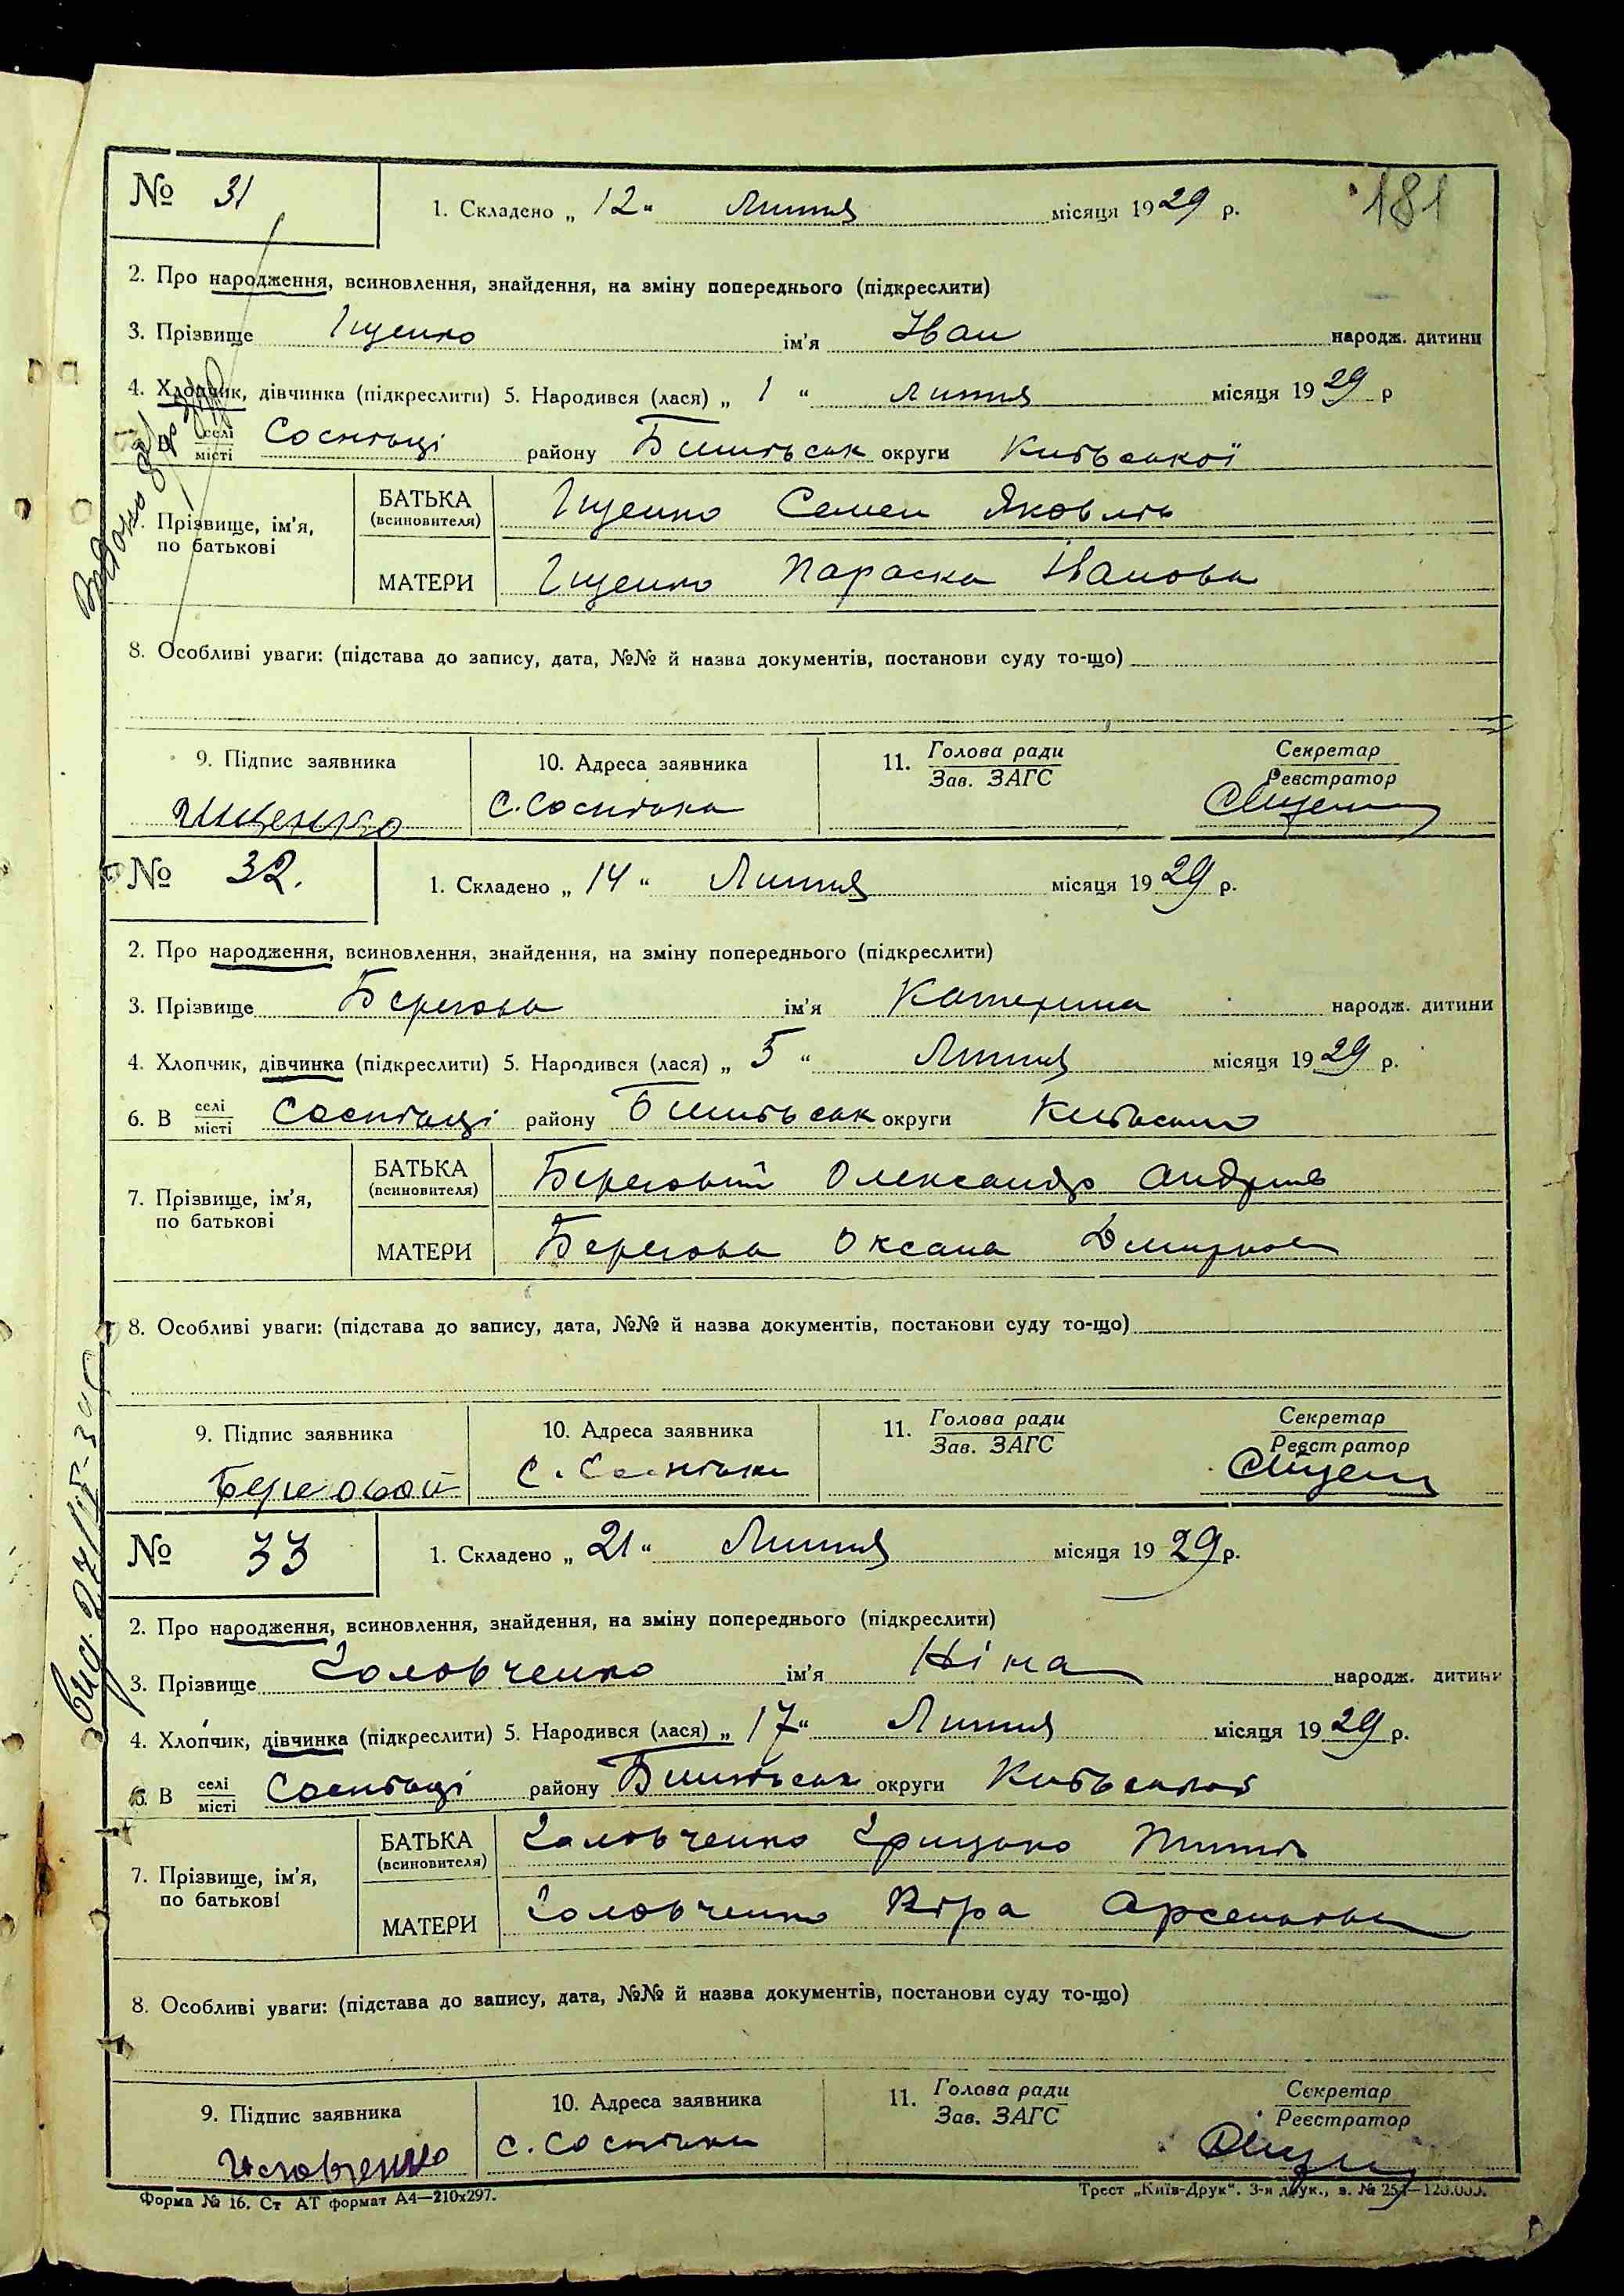 181
№ 31
1. Складено „ 12 “ Липня місяця 1929 р.
2. Про народження, всиновлення, знайдення, на зміну попереднього (підкреслити)
3. Прізвище Іщенко ім'я Іван народж. дитини
4. Хлопчик, дівчинка (підкреслити) 5. Народився (лася) „ 1 “ Липня місяця 1929 р
В селі/місті Соснівці району Бишівськ округи Київської
Прізвище, ім'я, по батькові
БАТЬКА (всиновителя) Іщенко Семен Яковлів
МАТЕРИ Іщенко Параска Іванова
8. Особливі уваги: (підстава до запису, дата, №№ й назва документів, постанови суду то-що)
9. Підпис заявника 10. Адреса заявника 11. Голова ради/Зав. ЗАГС Секретар/Реєстратор
Ищенко С. Соснівка
№ 32.
1. Складено „ 14 “ Липня місяця 1929 р.
2. Про народження, всиновлення, знайдення, на зміну попереднього (підкреслити)
3. Прізвище Берегова ім'я Катерина народж. дитини
4. Хлопчик, дівчинка (підкреслити) 5. Народився (лася) „ 5 “ Липня місяця 1929 р.
6. В селі/місті Соснівці району Бишівськ округи Київської
7. Прізвище, ім'я, по батькові
БАТЬКА (всиновителя) Береговий Олександр Андріїв
МАТЕРИ Берегова Оксана Дмитрова
8. Особливі уваги: (підстава до запису, дата, №№ й назва документів, постанови суду то-що)
9. Підпис заявника 10. Адреса заявника 11. Голова ради/Зав. ЗАГС Секретар/Реєстратор
Береговой С. Соснівка
№ 33
1. Складено „ 21 “ Липня місяця 1929 р.
2. Про народження, всиновлення, знайдення, на зміну попереднього (підкреслити)
3. Прізвище Головченко ім'я Ніна народж. дитини
4. Хлопчик, дівчинка (підкреслити) 5. Народився (лася) „ 17 “ Липня місяця 1929 р.
6. В селі/місті Соснівці району Бишівськ округи Київської
7. Прізвище, ім'я, по батькові
БАТЬКА (всиновителя) Головченко Грицько
МАТЕРИ Головченко Віра Арсенова
8. Особливі уваги: (підстава до запису, дата, №№ й назва документів, постанови суду то-що)
9. Підпис заявника 10. Адреса заявника 11. Голова ради/Зав. ЗАГС Секретар/Реєстратор
Головченко С. Соснівка
Форма № 16. Ст АТ формат А4—210х297.
Трест „Київ-Друк“. 3-я друк., з. №